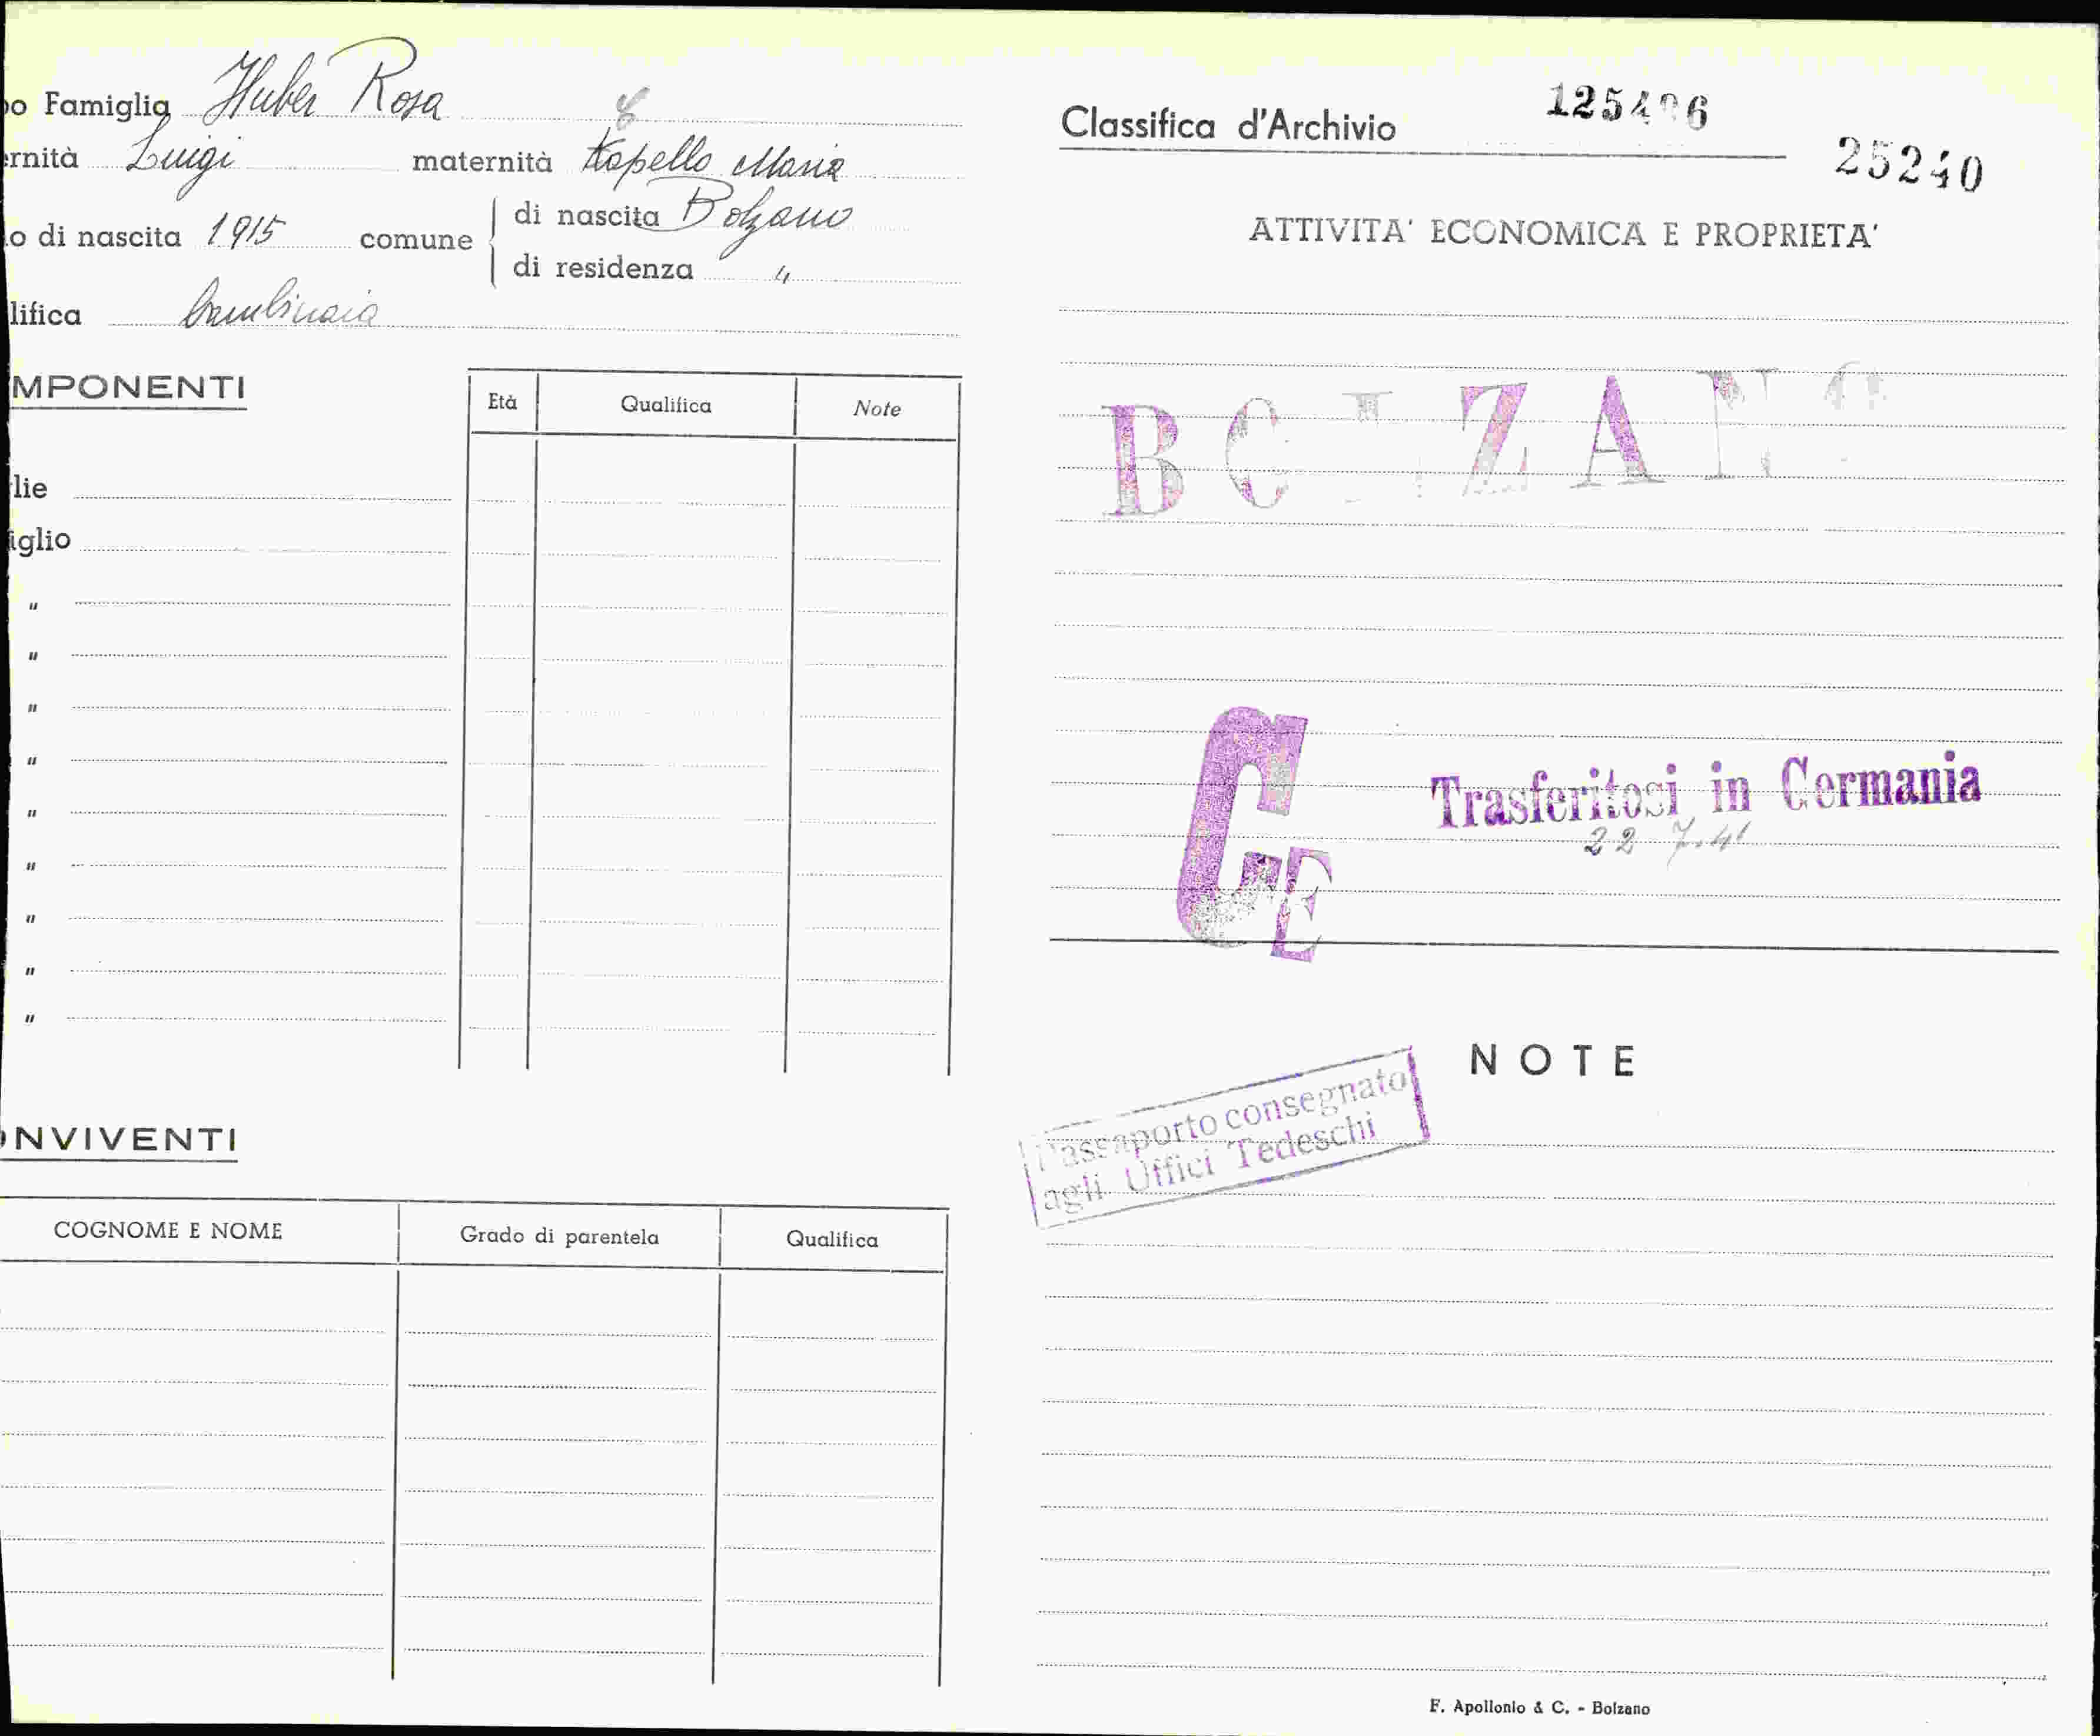 o Famiglia Huber Rosa
rnità Luigi maternità Kapeller Maria
o di nascita 1915 comune di nascita Bolzano
di residenza "
lifica bambinaia
MPONENTI
Età Qualifica Note
lie
iglio
"
"
"
"
"
"
"
"
"
NVIVENTI
COGNOME E NOME Grado di parentela Qualifica
Classifica d'Archivio
25240
ATTIVITA' ECONOMICA E PROPRIETA'
BOLZANO
GE
Trasferitosi in Germania
22 7.41
NOTE
Passaporto consegnato
agli Uffici Tedeschi
F. Apollonio & C. - Bolzano